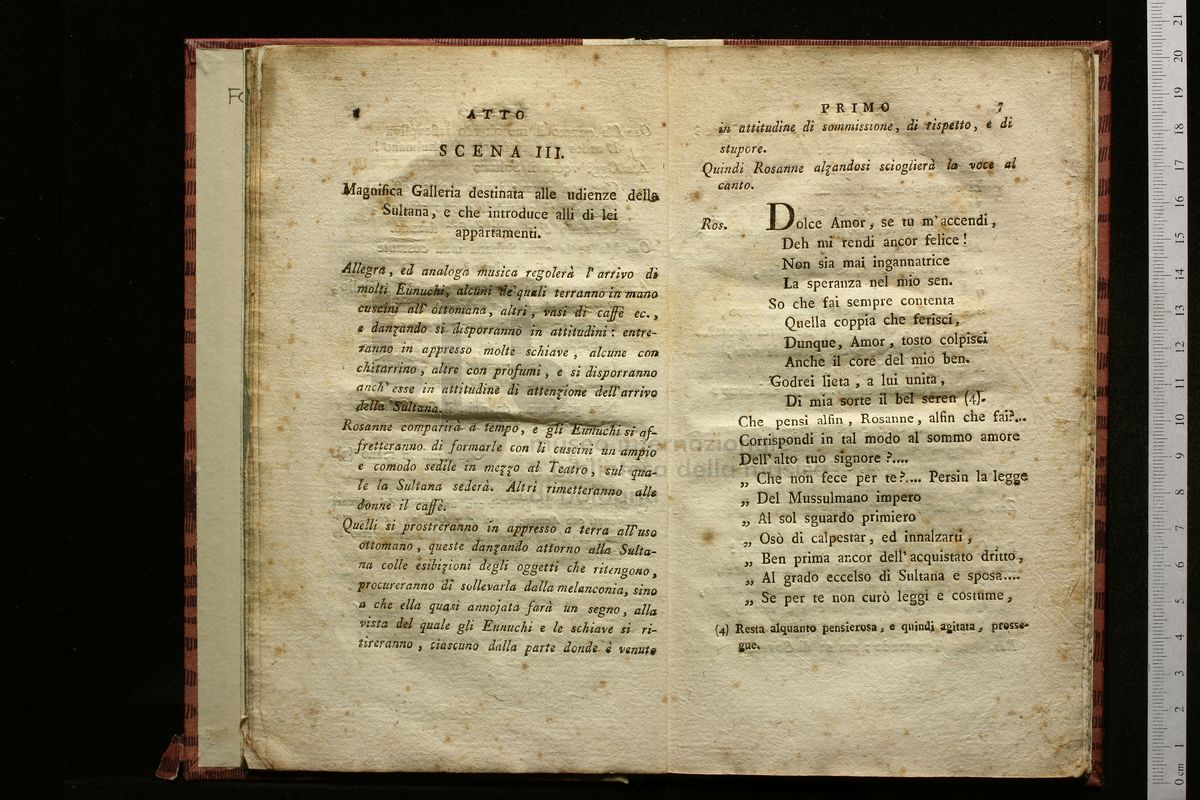 ATTO
SCENA III.
Magnifica Galleria destinata alle udienze della
Sultana, e che introduce alli di lei
appartamenti.
Allegra, ed analoga musica regolerà l'arrivo di
molti Eunuchi, alcuni de' quali terranno in mano
cuscini all' ottomana, altri, vasi di caffè ec.,
e danzando si disporranno in attitudini: entre-
ranno in appresso molte schiave, alcune con
chitarrino, altre con profumi, e si disporranno
anch' esse in attitudine di attenzione dell'arrivo
della Sultana.
Rosanne comparirà a tempo, e gli Eunuchi si af-
fretteranno di formarle con li cuscini un ampio
e comodo sedile in mezzo al Teatro, sul qua-
le la Sultana sederà. Altri rimetteranno alle
donne il caffè.
Quelli si prostreranno in appresso a terra all'uso
ottomano, queste danzando attorno alla Sulta-
na colle esibizioni degli oggetti che ritengono,
procureranno di sollevarla dalla melanconia, sino
a che ella quasi annojata farà un segno, alla
vista del quale gli Eunuchi e le schiave si ri-
tireranno, ciascuno dalla parte donde è venuto
PRIMO 7
in attitudine di sommissione, di rispetto, e di
stupore.
Quindi Rosanne alzandosi scioglierà la voce al
canto.
Ros. Dolce Amor, se tu m'accendi,
Deh mi rendi ancor felice!
Non sia mai ingannatrice
La speranza nel mio sen.
So che fai sempre contenta
Quella coppia che ferisci,
Dunque, Amor, tosto colpisci
Anche il core del mio ben.
Godrei lieta, a lui unita,
Di mia sorte il bel seren (4).
Che pensi alfin, Rosanne, alfin che fai?...
Corrispondi in tal modo al sommo amore
Dell'alto tuo signore?....
„ Che non fece per te?.... Persin la legge
„ Del Mussulmano impero
„ Al sol sguardo primiero
„ Osò di calpestar, ed innalzarti,
„ Ben prima ancor dell'acquistato dritto,
„ Al grado eccelso di Sultana e sposa....
„ Se per te non curò leggi e costume,
(4) Resta alquanto pensierosa, e quindi agitata, prosse-
gue.
museo internazio
della musica
0 cm 1 2 3 4 5 6 7 8 9 10 11 12 13 14 15 16 17 18 19 20 21